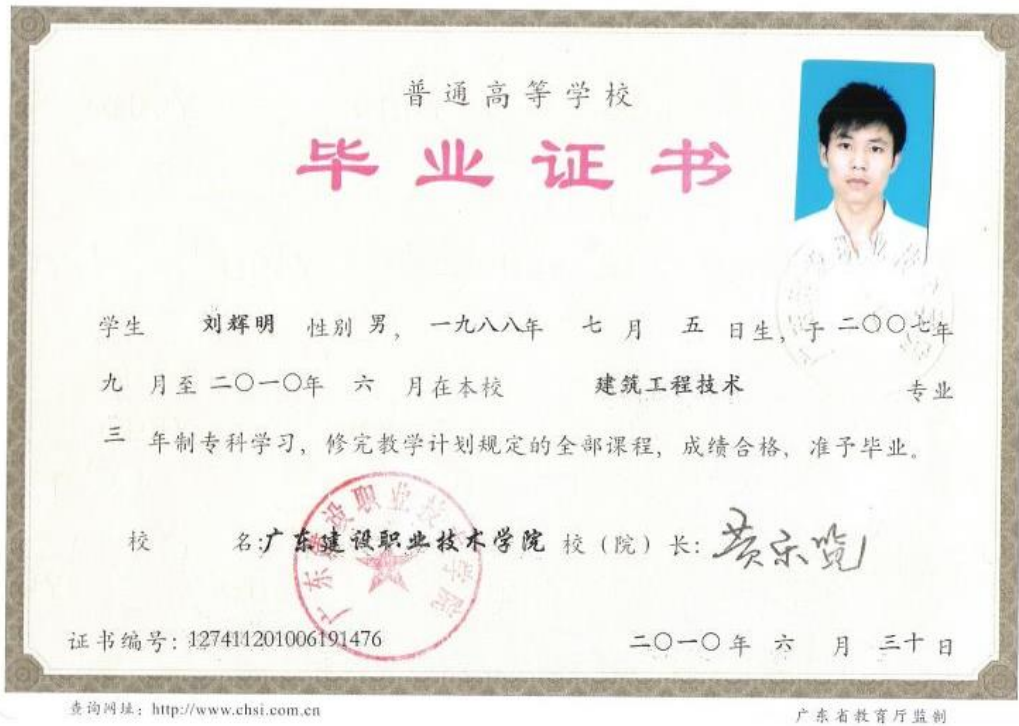 普通高等学校
毕业证书
学生 刘辉明 性别 男，一九八八年 七 月 五 日生，于 二〇〇七年
九 月至 二〇一〇年 六 月在本校 建筑工程技术 专业
三 年制专科学习，修完教学计划规定的全部课程，成绩合格，准予毕业。
校 名:广东建设职业技术学院 校（院）长:
广东建设职业技术学院
证书编号：127411201006191476 二〇一〇年 六 月 三十 日
查询网址：http://www.chsi.com.cn 广东省教育厅监制